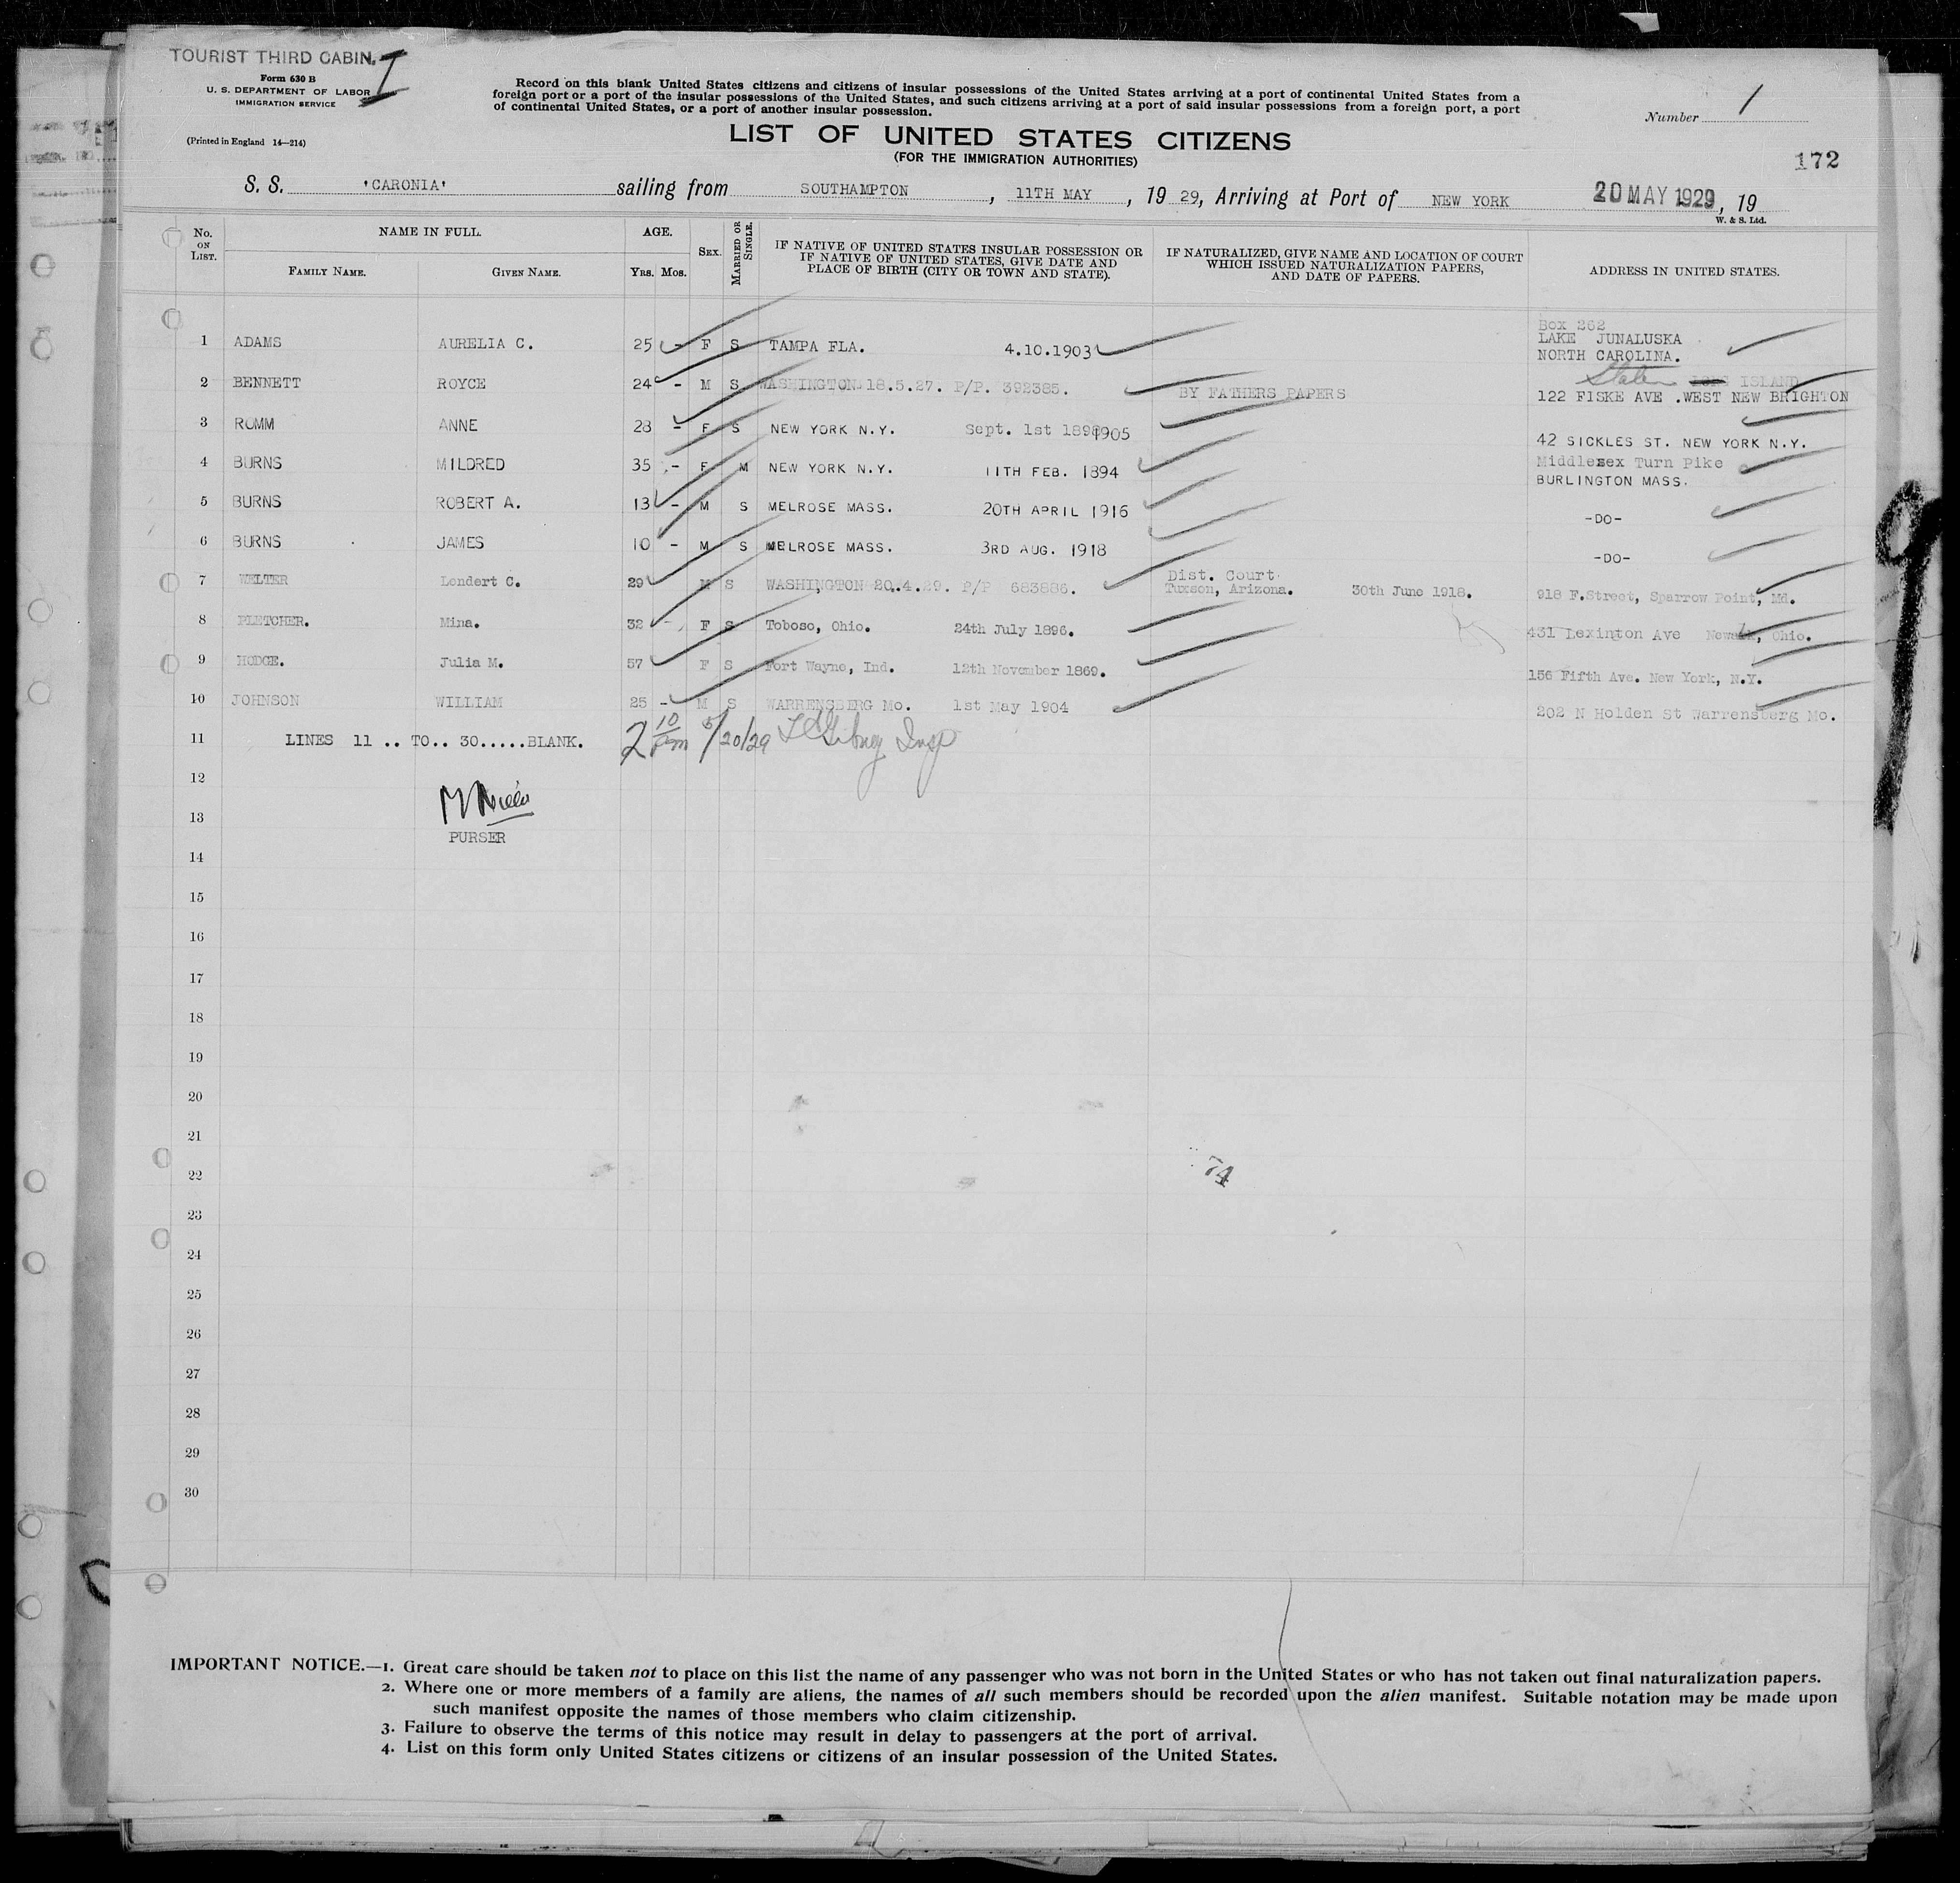 TOURIST THIRD CABIN. I
Form 630 B
U. S. DEPARTMENT OF LABOR
IMMIGRATION SERVICE
(Printed in England 14—214)
Record on this blank United States citizens and citizens of insular possessions of the United States arriving at a port of continental United States from a
foreign port or a port of the insular possessions of the United States, and such citizens arriving at a port of said insular possessions from a foreign port, a port
of continental United States, or a port of another insular possession.
Number 1
LIST OF UNITED STATES CITIZENS
(FOR THE IMMIGRATION AUTHORITIES)
172
S. S. 'CARONIA' sailing from SOUTHAMPTON, 11TH MAY, 19 29, Arriving at Port of NEW YORK 20 MAY 1929, 19
W. & S. Ltd.
No. ON LIST. NAME IN FULL. FAMILY NAME. GIVEN NAME. AGE. YRS. MOS. SEX. MARRIED OR SINGLE. IF NATIVE OF UNITED STATES INSULAR POSSESSION OR IF NATIVE OF UNITED STATES, GIVE DATE AND PLACE OF BIRTH (CITY OR TOWN AND STATE). IF NATURALIZED, GIVE NAME AND LOCATION OF COURT WHICH ISSUED NATURALIZATION PAPERS, AND DATE OF PAPERS. ADDRESS IN UNITED STATES.
1 ADAMS AURELIA C. 25 - F S TAMPA FLA. 4.10.1903 Box 262 LAKE JUNALUSKA NORTH CAROLINA.
2 BENNETT ROYCE 24 - M S WASHINGTON 18.5.27. P/P. 392385. BY FATHERS PAPERS Staten LONG ISLAND 122 FISKE AVE .WEST NEW BRIGHTON
3 ROMM ANNE 28 - F S NEW YORK N.Y. Sept. 1st 1905 42 SICKLES ST. NEW YORK N.Y.
4 BURNS MILDRED 35 - F M NEW YORK N.Y. 11TH FEB. 1894 Middlesex Turn Pike BURLINGTON MASS.
5 BURNS ROBERT A. 13 - M S MELROSE MASS. 20TH APRIL 1916 -DO-
6 BURNS JAMES 10 - M S MELROSE MASS. 3RD AUG. 1918 -DO-
7 WELTER Lendert C. 29 M S WASHINGTON 20.4.29. P/P 683886. Dist. Court. Tuxson, Arizona. 30th June 1918. 918 F.Street, Sparrow Point, Md.
8 FLETCHER. Mina. 32 - F S Toboso, Ohio. 24th July 1896. 431 Lexinton Ave Newark, Ohio.
9 HODGE. Julia M. 57 F S Fort Wayne, Ind. 12th November 1869. 156 Fifth Ave. New York, N.Y.
10 JOHNSON WILLIAM 25 - M S WARRENSBERG Mo. 1st May 1904 202 N Holden St Warrensberg Mo.
11 LINES 11 .. TO.. 30.....BLANK. 2 10 pm 5/20/29 Insp
12
13
PURSER
14
15
16
17
18
19
20
21
22 74
23
24
25
26
27
28
29
30
IMPORTANT NOTICE.—1. Great care should be taken not to place on this list the name of any passenger who was not born in the United States or who has not taken out final naturalization papers.
2. Where one or more members of a family are aliens, the names of all such members should be recorded upon the alien manifest. Suitable notation may be made upon
such manifest opposite the names of those members who claim citizenship.
3. Failure to observe the terms of this notice may result in delay to passengers at the port of arrival.
4. List on this form only United States citizens or citizens of an insular possession of the United States.